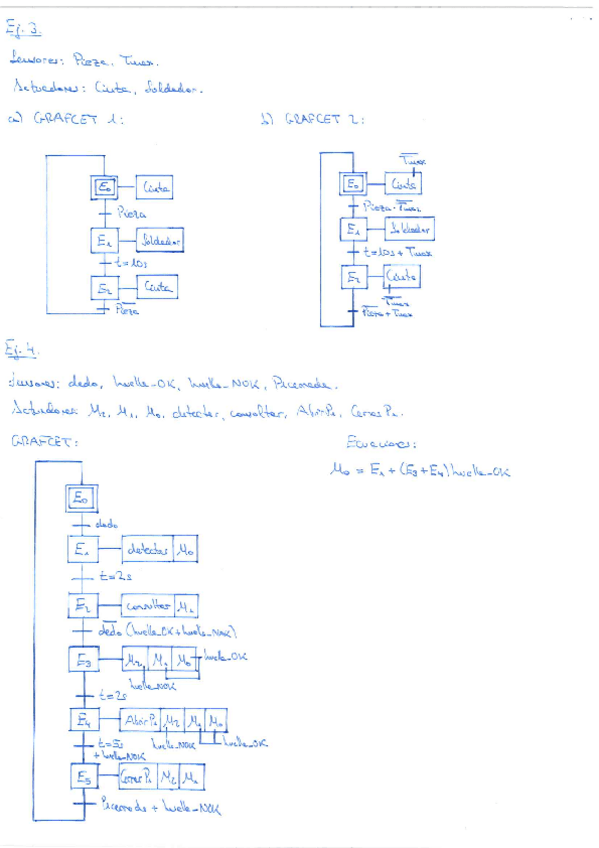 Ej. 3.
Sensores: Pieza, Tmax.
Actuadores: Cinta, Soldador.
a) GRAFCET 1:
b) GRAFCET 2:
E0 Cinta
Pieza
E1 Soldador
t=10s
E2 Cinta
P̅i̅e̅z̅a̅
T̅m̅a̅x̅
E0 Cinta
Pieza · T̅m̅a̅x̅
E1 Soldador
t=10s + Tmax
E2 Cinta
T̅m̅a̅x̅
P̅i̅e̅z̅a̅ + Tmax
Ej. 4.
Sensores: dedo, huella_OK, huella_NOK, Pcerrada.
Actuadores: M2, M1, M0, detectar, consultar, AbrirP1, CerrarP1.
GRAFCET:
Ecuaciones:
M0 = E1 + (E3 + E4) huella_OK
E0
dedo
E1 detectar M0
t=2s
E2 consultar M1
d̅e̅d̅o̅ (huella_OK + huella_NOK)
E3 M2 M1 M0 huella_OK
huella_NOK
t=2s
E4 AbrirP1 M2 M1 M0
huella_NOK huella_OK
t=5s
+ huella_NOK
E5 CerrarP1 M2 M1
Pcerrada + huella_NOK